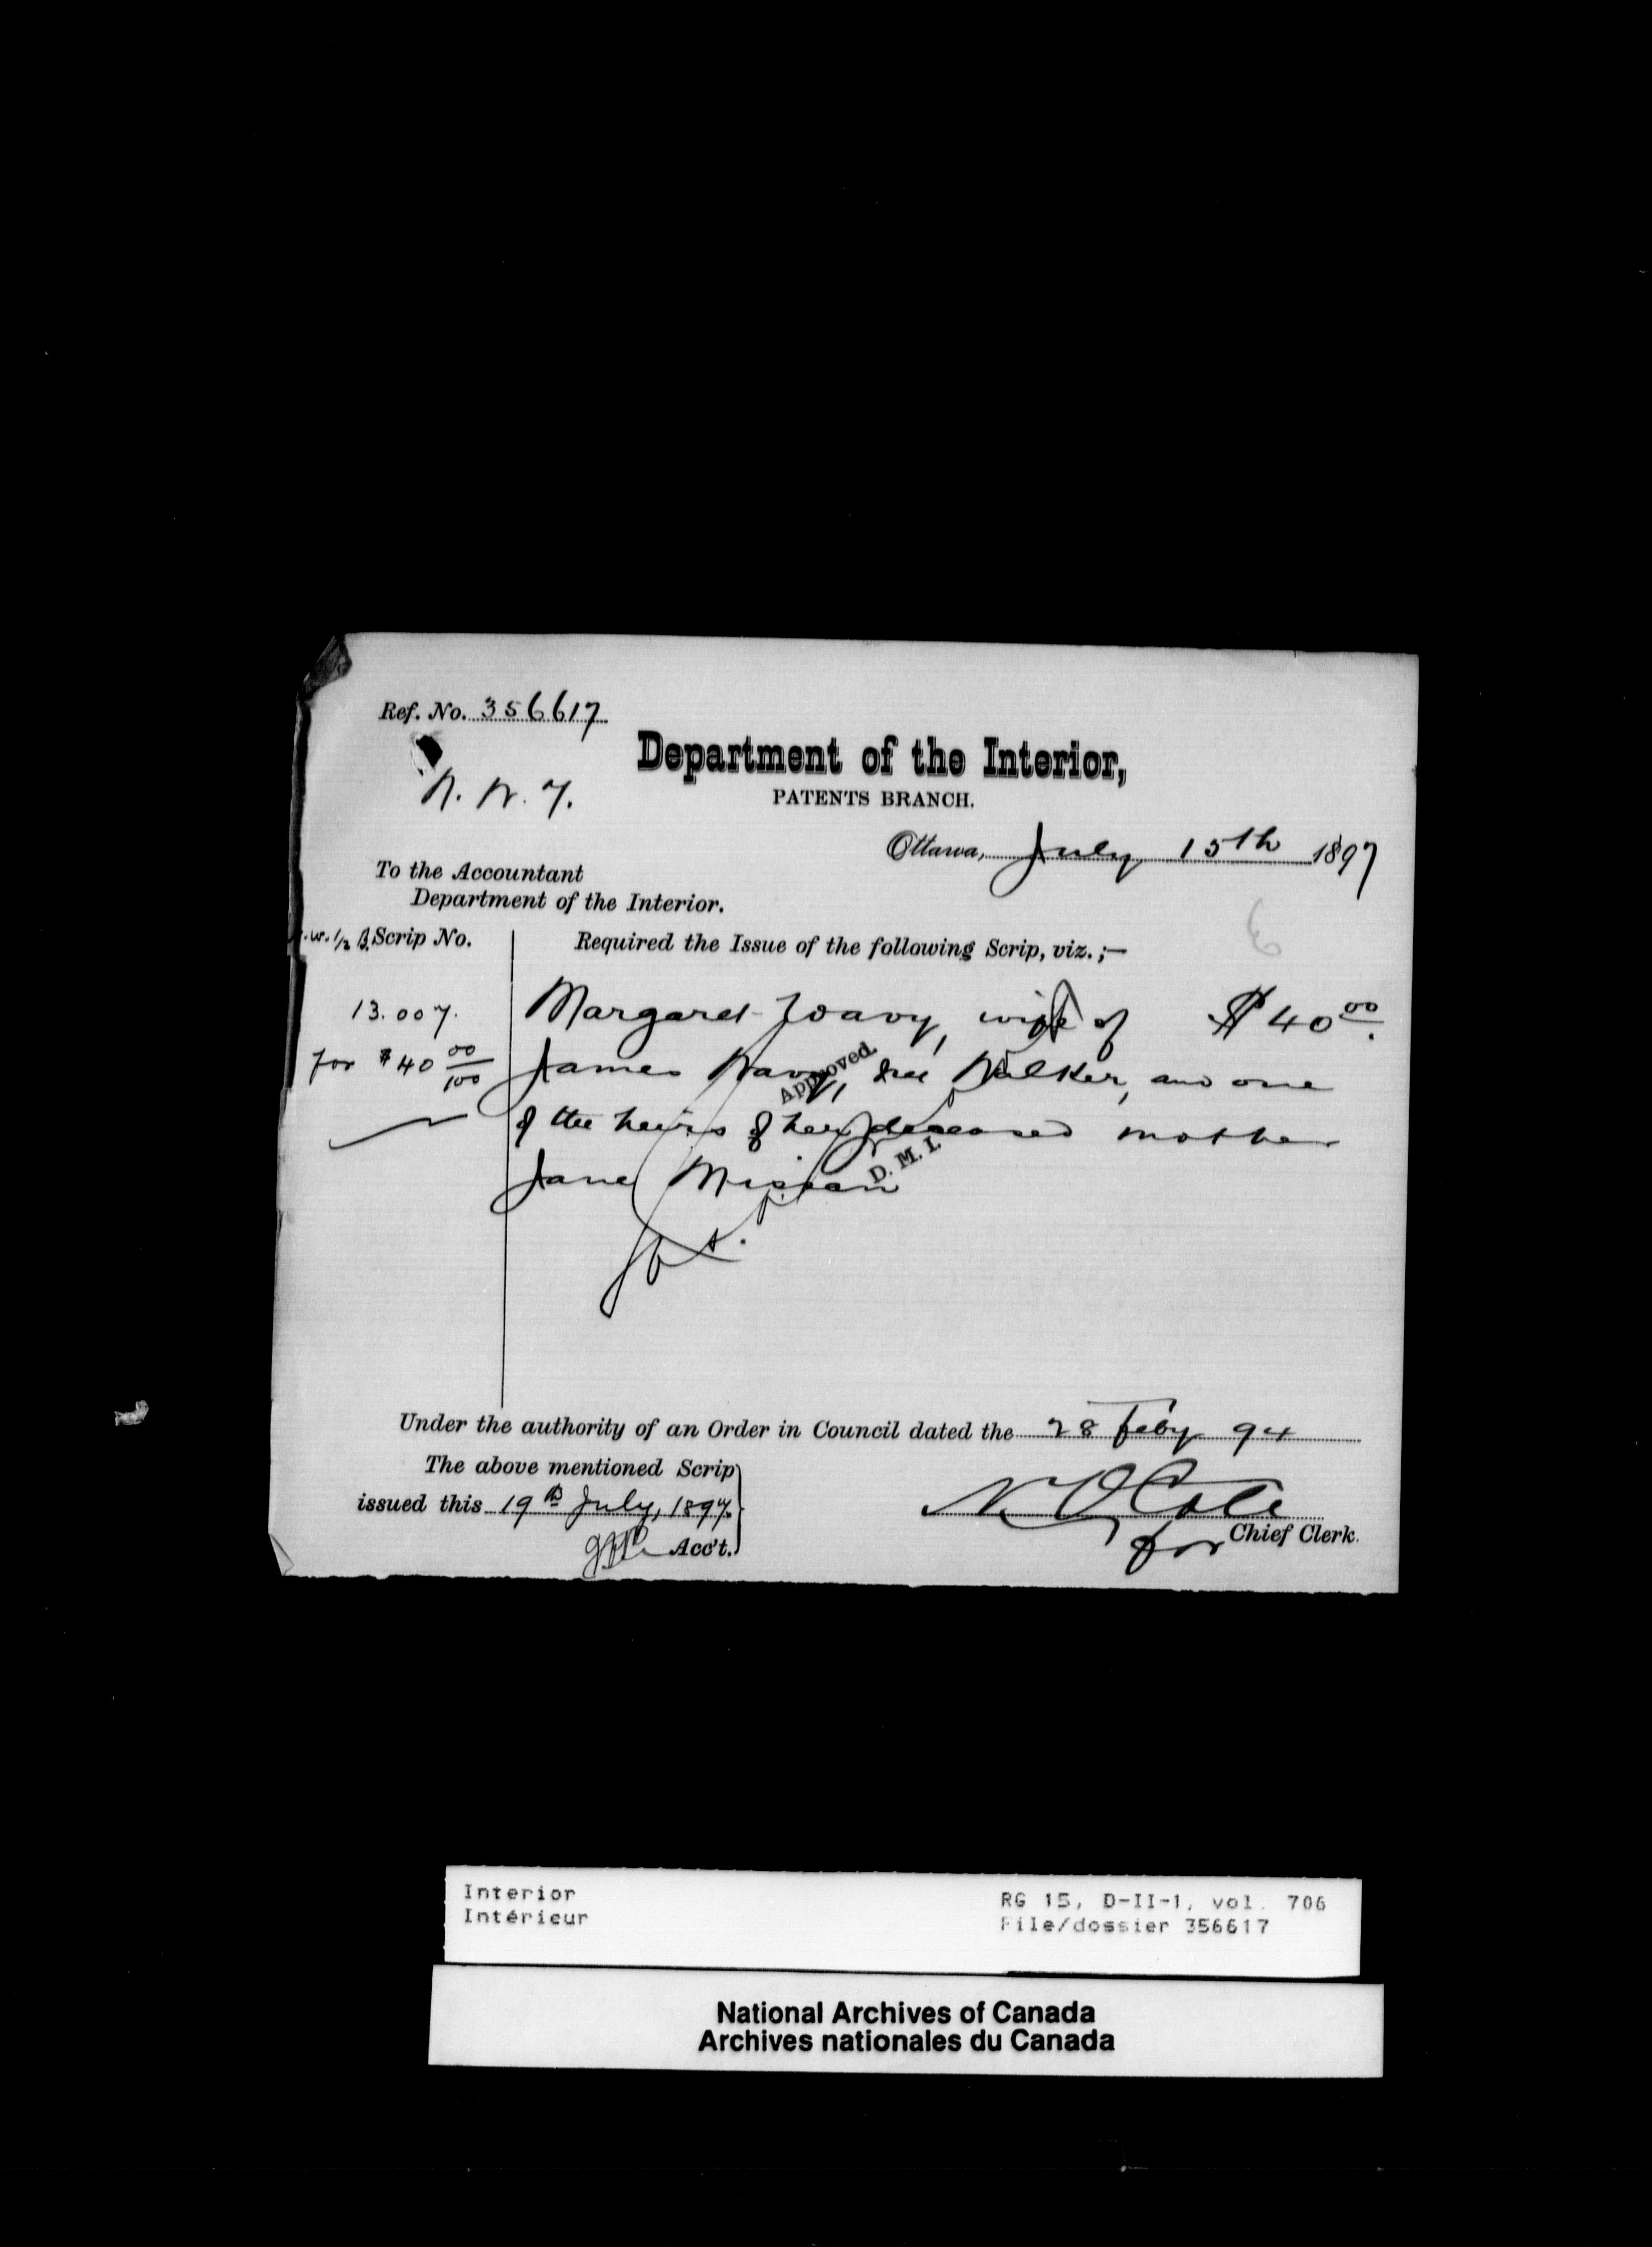 Ref. No. 356617
Department of the Interior,
N. W. T.
PATENTS BRANCH.
Ottawa, July 15th 1897
To the Accountant
Department of the Interior.
.W. 1/2 B. Scrip No.
Required the Issue of the following Scrip, viz.;—
13.007. Margaret wife of $40 00
for $40 00/100 James née Walker, and one
Approved.
of the heirs of her deceased mother
D. M. I.
Jane
Under the authority of an Order in Council dated the 28 Feby 94
The above mentioned Scrip
issued this 19th July, 1897.
Acc't.
for Chief Clerk.
Interior
Intérieur
RG 15, D-II-1, vol. 706
File/dossier 356617
National Archives of Canada
Archives nationales du Canada